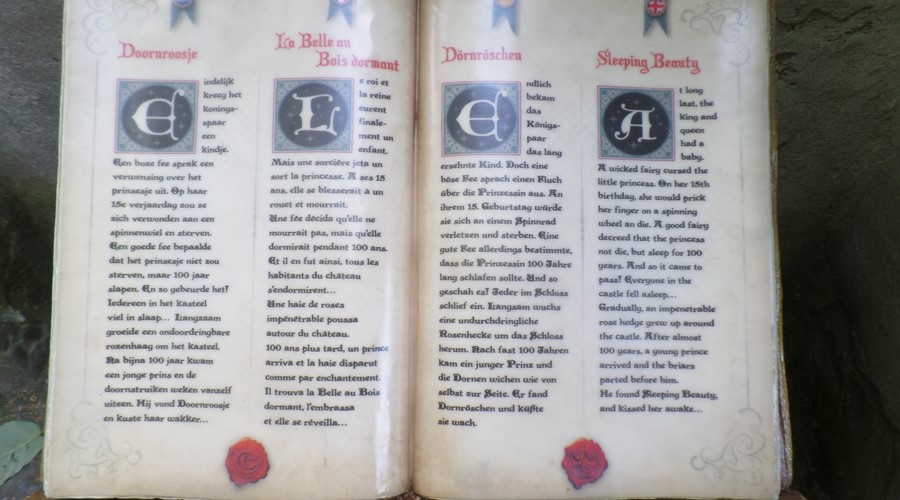 Doornroosje
Eindelijk
kreeg het
konings-
paar
een
kindje.
Een boze fee sprak een
verwensing over het
prinsesje uit. Op haar
15e verjaardag zou ze
zich verwonden aan een
spinnenwiel en sterven.
Een goede fee bepaalde
dat het prinsesje niet zou
sterven, maar 100 jaar
slapen. En zo gebeurde het!
Iedereen in het kasteel
viel in slaap... Langzaam
groeide een ondoordringbare
rozenhaag om het kasteel.
Na bijna 100 jaar kwam
een jonge prins en de
doornstruiken weken vanzelf
uiteen. Hij vond Doornroosje
en kuste haar wakker...
La Belle au
Bois dormant
Le roi et
la reine
eurent
finale-
ment un
enfant.
Mais une sorcière jeta un
sort la princesse. A ses 15
ans, elle se blesserait à un
rouet et mourrait.
Une fée décida qu'elle ne
mourrait pas, mais qu'elle
dormirait pendant 100 ans.
Et il en fut ainsi, tous les
habitants du château
s'endormirent...
Une haie de roses
impénétrable poussa
autour du château.
100 ans plus tard, un prince
arriva et la haie disparut
comme par enchantement.
Il trouva la Belle au Bois
dormant, l'embrassa
et elle se réveilla...
Dörnröschen
Endlich
bekam
das
Königs-
paar
das lang
ersehnte Kind. Doch eine
böse Fee sprach einen Fluch
über die Prinzessin aus. An
ihrem 15. Geburtstag würde
sie sich an einem Spinnrad
verletzen und sterben. Eine
gute Fee allerdings bestimmte,
dass die Prinzessin 100 Jahre
lang schlafen sollte. Und so
geschah es! Jeder im Schloss
schlief ein. Langsam wuchs
eine undurchdringliche
Rosenhecke um das Schloss
herum. Nach fast 100 Jahren
kam ein junger Prinz und
die Dornen wichen wie von
selbst zur Seite. Er fand
Dornröschen und küßte
sie wach.
Sleeping Beauty
At long
last, the
king and
queen
had a
baby.
A wicked fairy cursed the
little princess. On her 15th
birthday, she would prick
her finger on a spinning
wheel an die. A good fairy
decreed that the princess
not die, but sleep for 100
years. And so it came to
pass! Everyone in the
castle fell asleep...
Gradually, an impenetrable
rose hedge grew up around
the castle. After almost
100 years, a young prince
arrived and the briars
parted before him.
He found Sleeping Beauty,
and kissed her awake...